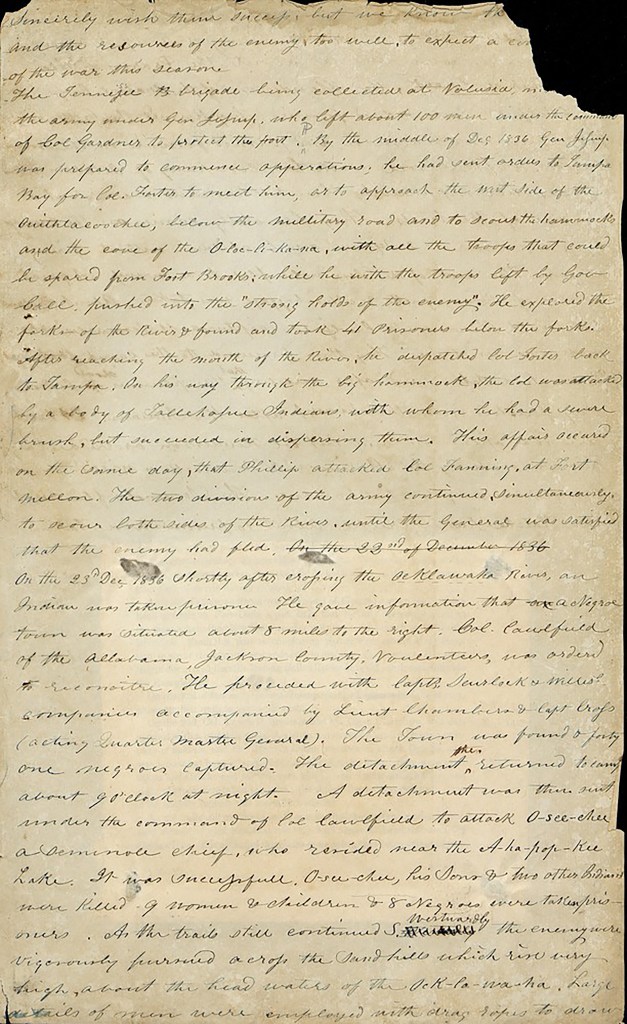 Sincerely wish them success, but we know th
and the resources of the enemy too well, to expect a con
of the war this season
The Tennessee B brigade being collected at Volusia,
the army under Gen Jessup, who left about 100 men under the command
of Col Gardner to protect the fort. By the middle of Dec 1836 Gen Jessup
was prepared to commence opperations; he had sent orders to Tampa
Bay for Col. Foster to meet him, or to approach the west side of the
Ouithlacoochee, below the millitary road and to scour the hammocks
and the cove of the O-loc-li-ka-na, with all the troops that could
be spared from Fort Brooks; while he with the troops left by Gov
Call, pushed into the "strong holds of the enemy". He explored the
forks of the River & found and took 41 Prisoners below the forks.
After reaching the mouth of the River, he dispatched Col Foster back
to Tampa. On his way through the big hammock, the Col was attacked
by a body of Tallehassee Indians, with whom he had a severe
brush, but succeeded in dispersing them. This affair occured
on the same day, that Phillip attacked Col Fanning, at Fort
Mellon. The two divisions of the army continued, simultaneously,
to scour both sides of the River, until the General was satisfied
that the enemy had fled. On the 23rd of December 1836
On the 23d Dec 1836 Shortly after crossing the Ocklawaka River, an
Indian was taken prisoner He gave information that a Negroe
town was situated about 8 miles to the right. Col. Caulfield
of the Allabama, Jackson County, Vounlenteers, was orderd
to reconoitre. He proceded with Capts Scurlock & Willis'
companies accompanied by Lieut Chambers & Capt Cross
(acting Quarter Master General). The Town was found & forty
one negroes captured. The detachment then returned to camp
about 9 o'clock at night. A detachment was then sent
under the command of Col Cawlfield to attack O-see-chee
a Seminole chief, who resided near the A-ha-pop-kee
Lake. It was successfull. O-see-chee, his Sons & two other Indians
were killed 9 women & children & 8 Negroes were taken pris-
oners. As the trails still continued S. Westwardly the enemy were
vigorously pursued across the Sandhills which rise very
high, about the head waters of the Ock-la-wa-ha. Large
details of men were employed with drag ropes to draw